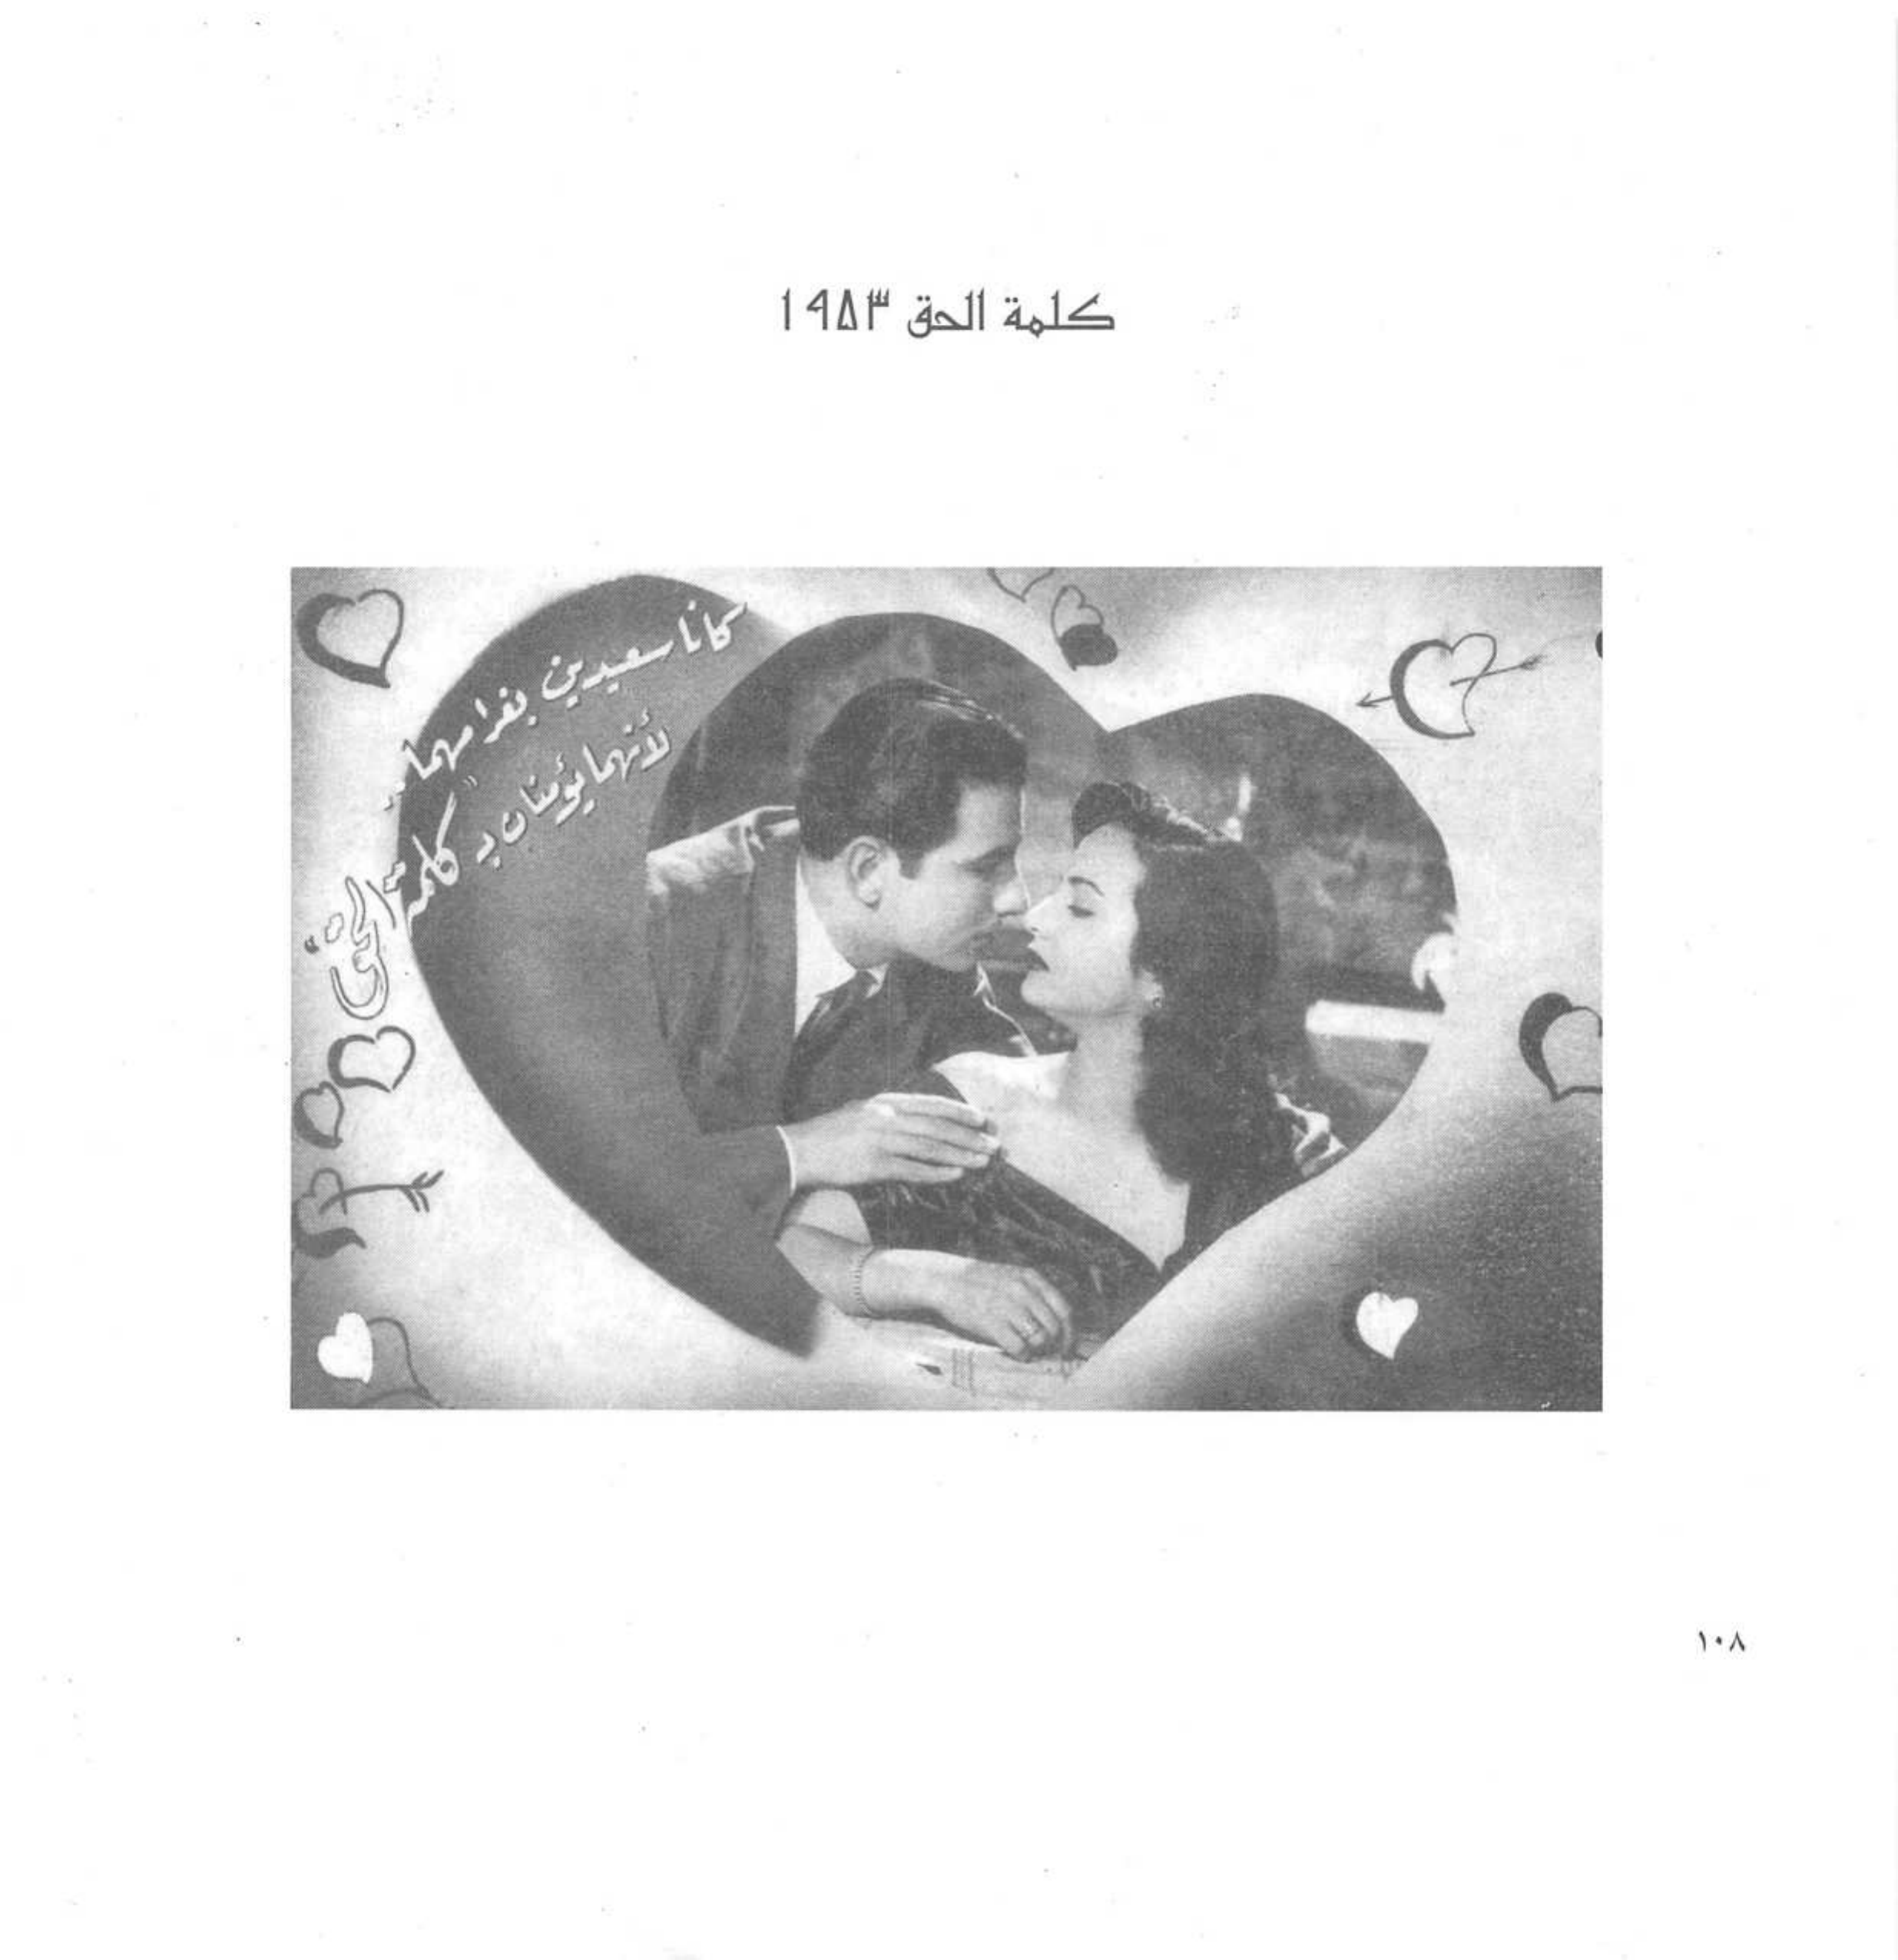 كلمة الحق ١٩٥٣
كانا سعيدين بغرامهما..
لأنهما يؤمنان بـ "كلمة الحق"
١٠٨